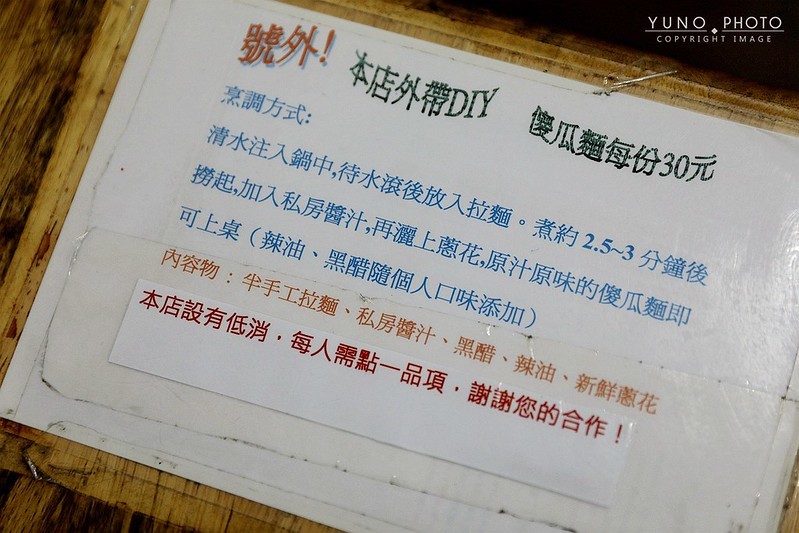 YUNO PHOTO
COPYRIGHT IMAGE
號外!
本店外帶DIY 傻瓜麵每份30元
烹調方式:
清水注入鍋中,待水滾後放入拉麵。煮約 2.5~3 分鐘後
撈起,加入私房醬汁,再灑上蔥花,原汁原味的傻瓜麵即
可上桌（辣油、黑醋隨個人口味添加）
內容物：半手工拉麵、私房醬汁、黑醋、辣油、新鮮蔥花
本店設有低消，每人需點一品項，謝謝您的合作！